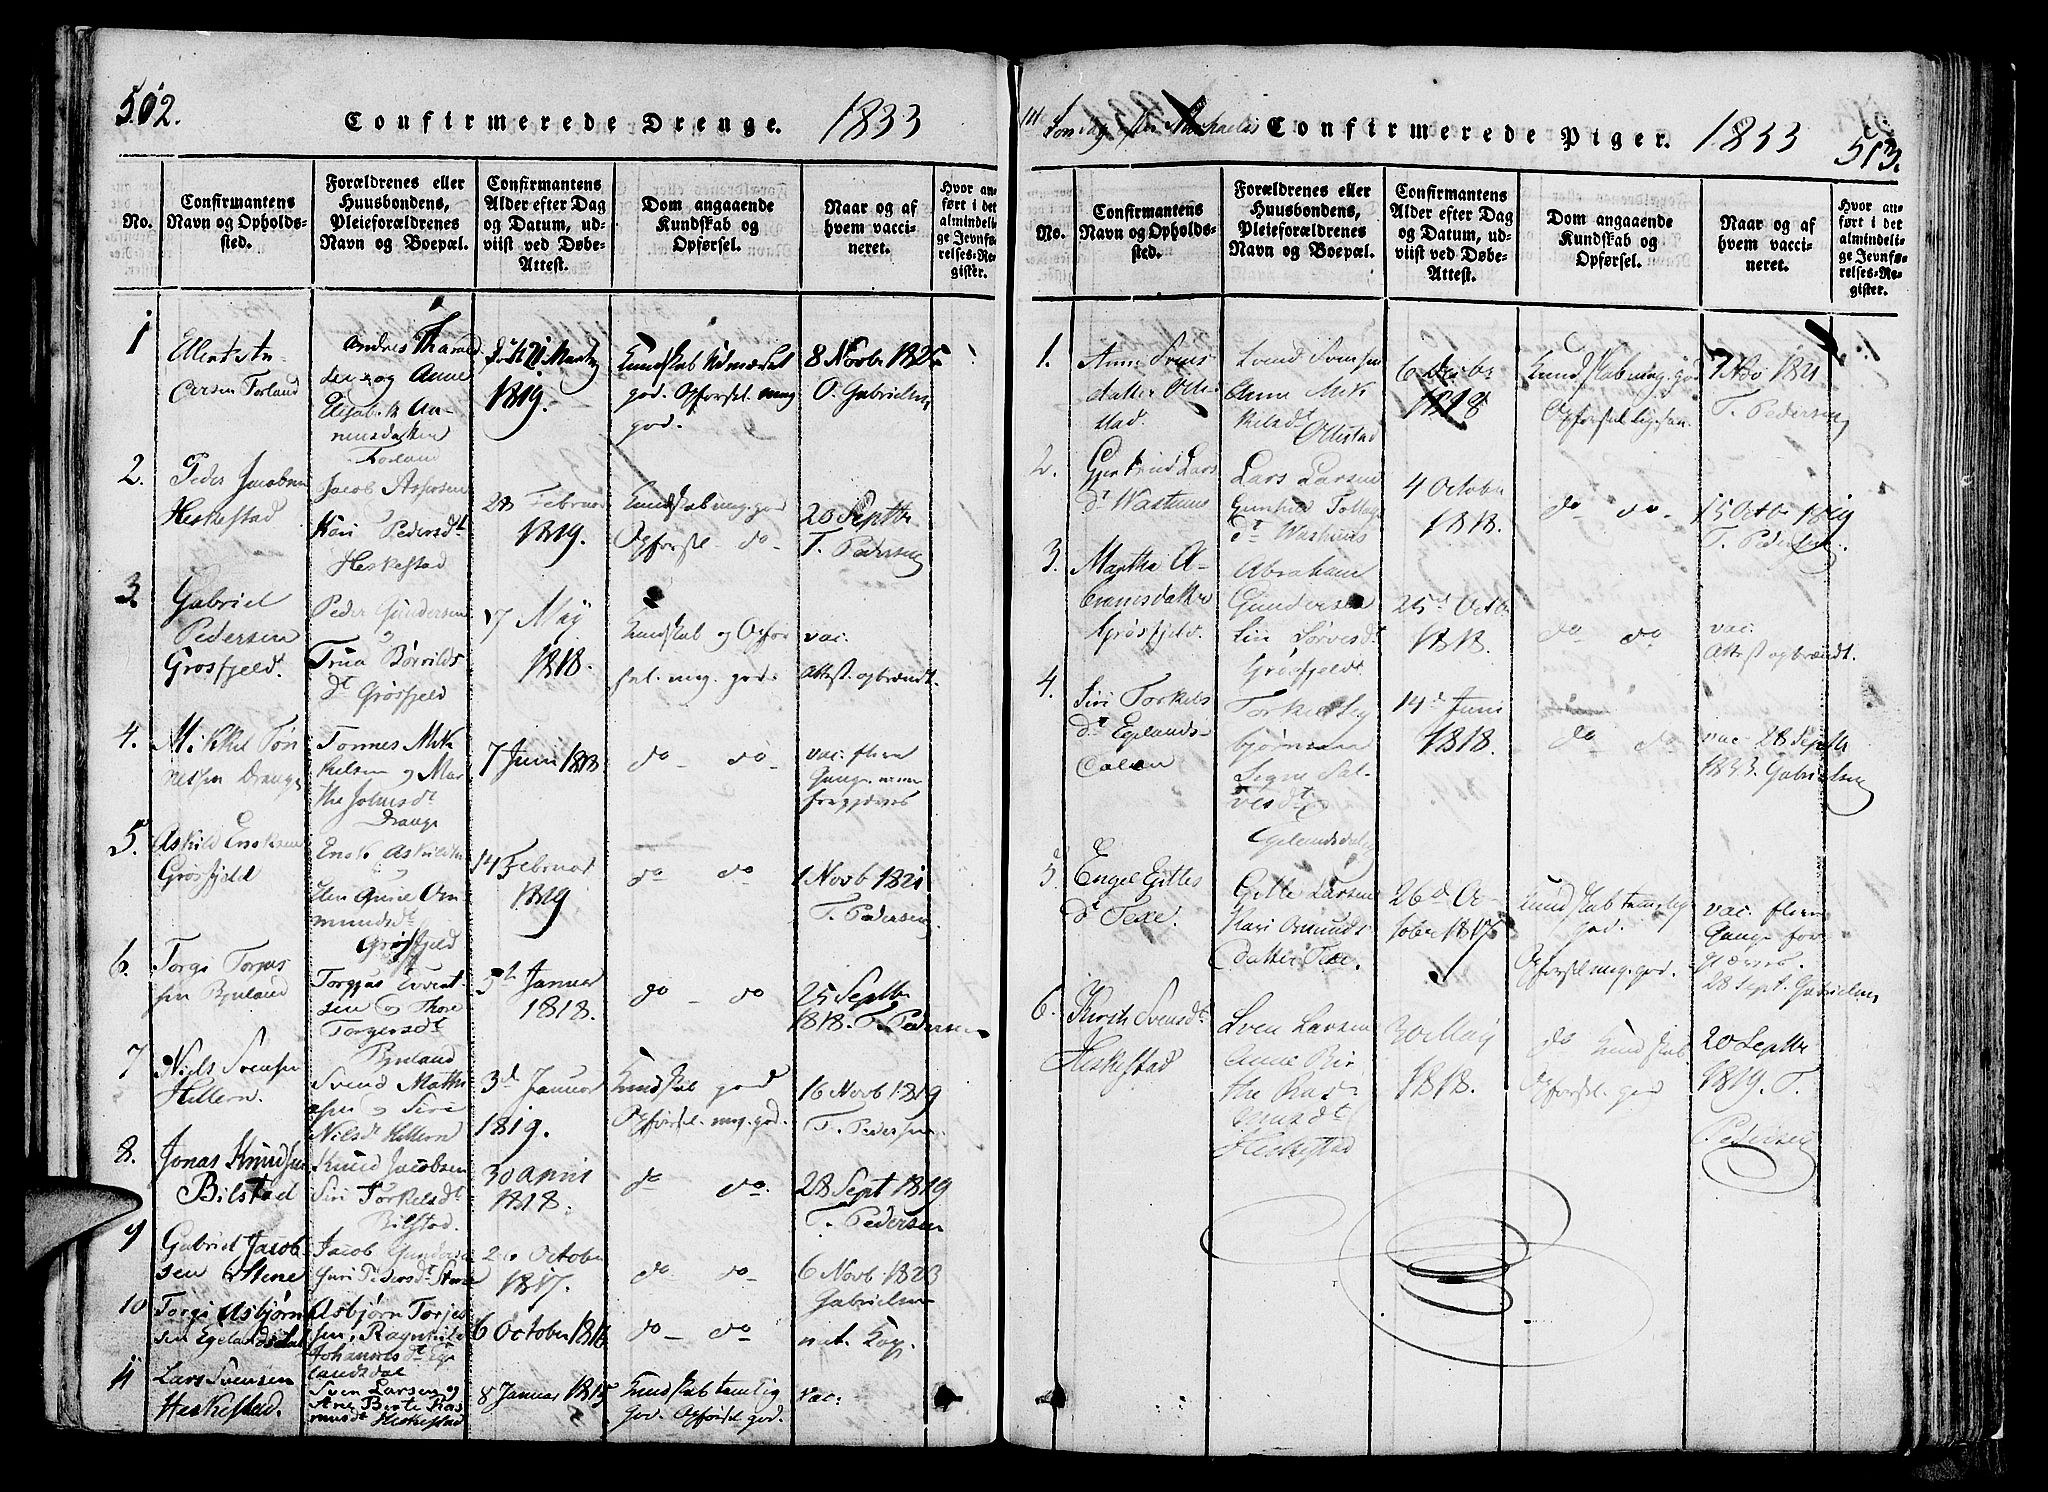 502.
Confirmerede Drenge.
1833
No.
Confirmantens Navn og Opholdssted.
Forældrenes eller Huusbondens, Pleieforældrenes Navn og Boepæl.
Confirmantens Alder efter Dag og Datum, udviist ved Døbe-Attest.
Dom angaaende Kundskab og Opførsel.
Naar og af hvem vaccineret.
Hvor anført i det almindelige Jevnførelses-Register.
1
Andres
Anne
Elisabeth
Torland
1819.
Kundskab
god. Opførsel meg
god.
8 Novb 1825
O. Gabrielsen
2.
Peder Jacobsen
Heskestad
Jacob
Kari Pedersdt
Heskestad
28 Februar
1819.
Kundskab meg. god
Opførsel do
20 Septbr
T. Pedersen
3.
Gabriel
Pedersen
Grosfjeld.
Peder Gundersen
Børrilds
dt Grosfjeld
17 May
1818.
Kundskab og Opfør
sel. meg. god.
vac.
Attest. opbrændt.
4.
Mikkel Tøn
nessen Drange
Tonnes Mik
kelsen og Mar
the Johnsdt
Drange
7 Juni 1818
do do
vac. flere
Gange
5.
Askild
Grosfjeld
Grosfjeld
14 Februar
1819
do do
1 Novb 1821
T. Pedersen
6.
Torgi Torjus
sen Bjuland
sen og Thore
Torgersdt
Bjuland
Januar
1818.
do do
25 Septbr
1818. T. Pedersen
7
Niels Svensen
Hellern.
Svend Mathi
sen og Siri
Nilsdt Hellern
3d Januar
1819.
Kundskab god
Opførsel. meg. god.
16 Novb 1819
T. Pedersen
8.
Jonas Knudsen
Bilstad
Knud Jacobsen
Siri Torkelsdt
Bilstad.
30 April
1818.
do do.
28 Sept 1819
T. Pedersen
9
Gabriel Jacob
sen Stene
Jacob Gunders
Guri Pedersdt Stene
October
1817.
do do
6 Novb 1823
Gabrielsen
10
Torgi Asbjørn
sen Egelandsdal
Asbjørn Torjes
sen, Ragnhild
Johannesdt Ege
landsdal
6 October 1816
do do
nat. Kop.
11
Lars Svensen
Heskestad.
Sven Larsen og
Ane Birte Ras
musdt Heskestad
8 Januar 1815
Kundskab temlig
god. Opførsel god.
vac:
Søndag efter Michaelis
Confirmerede Piger.
1833
513.
No.
Confirmantens Navn og Opholdssted.
Forældrenes eller Huusbondens, Pleieforældrenes Navn og Boepæl.
Confirmantens Alder efter Dag og Datum, udviist ved Døbe-Attest.
Dom angaaende Kundskab og Opførsel.
Naar og af hvem vaccineret.
Hvor anført i det almindelige Jevnførelses-Register.
1.
Anne Svens
datter Olle
stad.
Svend Svensen
Anne Mik
kelsdt
Ollestad
1818
Kundskab meg. god
Opførsel ligesaa.
7 Nov 1821
T. Pedersen
2.
Gjertrud Lars
dt Washuus
Lars Larsen
Gunhild
dt Washuus
4 October
1818.
do do
15 Octb 1819
T. Pedersen.
3.
Martha A
Grosfjeld.
Abraham
Gundersen
Siri
Grosfjeld.
25d Octb
1818.
do do
vac.
Attest opbrændt.
4.
Siri Torkels
dt Egelands-
dalen
Torkel
bjørnsen
Signe Sal
vesdt
Egelandsdalen
14d Juni
1818.
do do
vac. 28 Septbr
1833. Gabrielsen
5.
Engel Gittes
dt Texe.
Gitle Larsen
Kari Omunds
datter Texe.
26d Oc
tober 1817
Kundskab temlig
god.
Opførsel meg. god.
vac. flere
Gange for
gjæves.
28 Sept. Gabrielsen
6.
Kirsti Svensdt
Heskestad
Sven Larsen
Anne Bir
the Ras
musdt
Heskestad
30 May
1818.
do Kundskab
Opførsel. god
20 Septbr
1819. T.
Pedersen